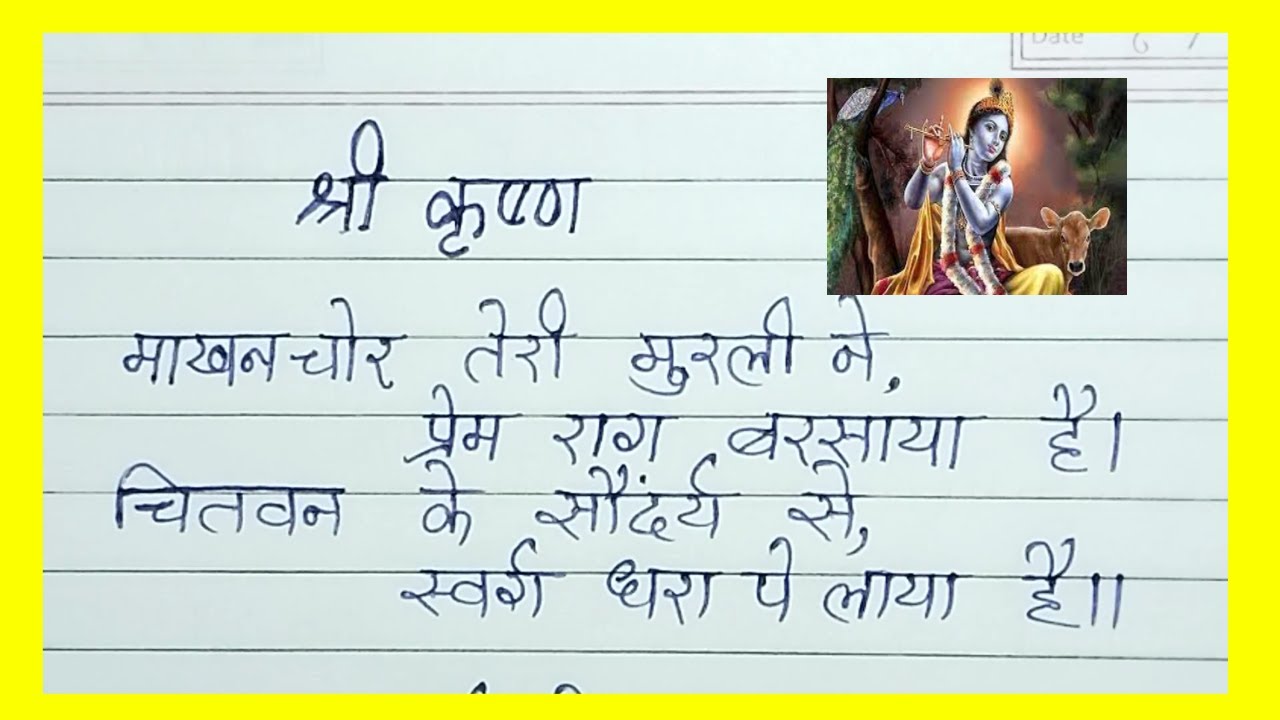 Date
श्री कृष्ण
माखनचोर तेरी मुरली ने,
प्रेम राग बरसाया है।
चितवन के सौंदर्य से,
स्वर्ग धरा पे लाया है॥